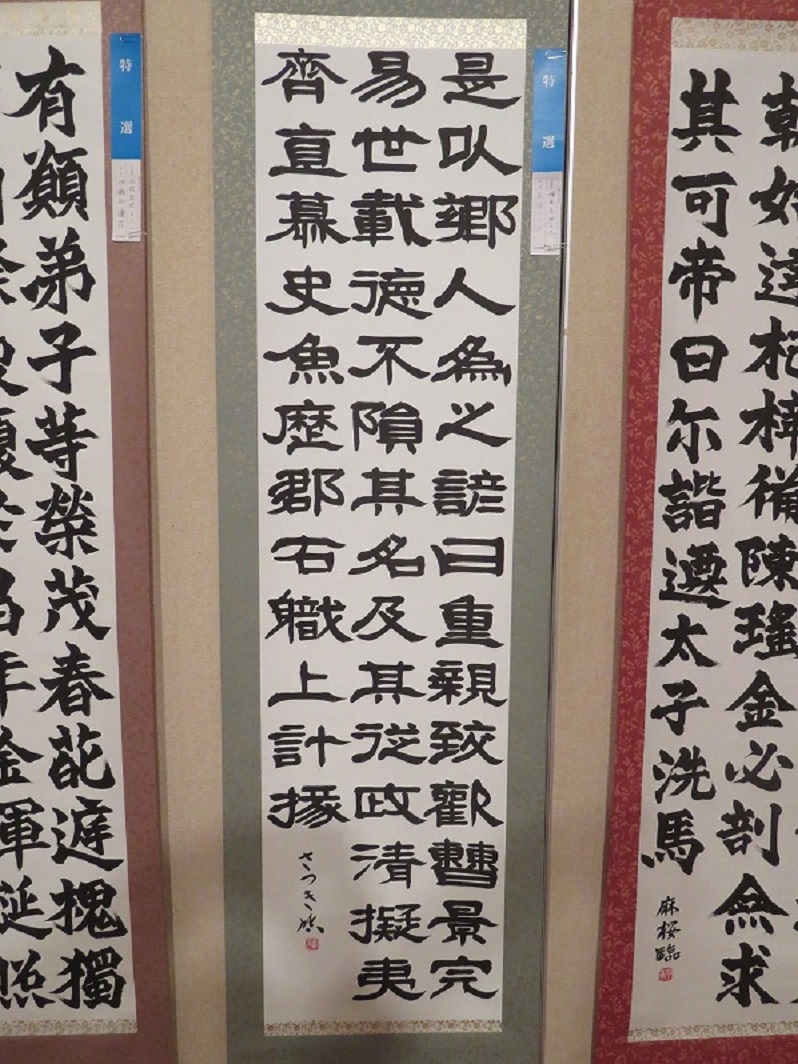 朝好達杞梓備陳瑤金必剖無求
其可帝曰尓諧遷太子洗馬
麻桜臨
特選
是以郷人為之諺曰重親致歡曹景完
易世載德不隕其名及其従政清擬夷
齊直慕史魚歴郡右職上計掾
さつき臨
特選
有願弟子等榮茂春葩庭槐獨